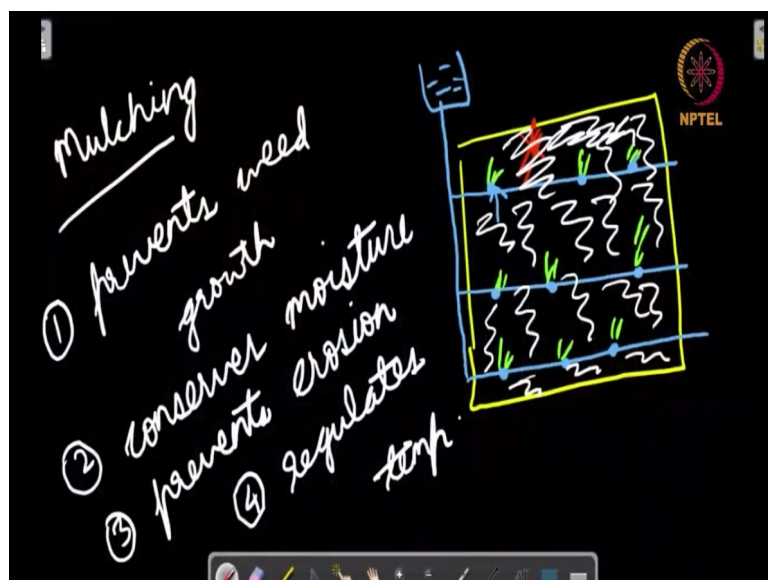 Mulching
① prevents weed
growth
② conserves moisture
③ prevents erosion
④ regulates
temp.
NPTEL